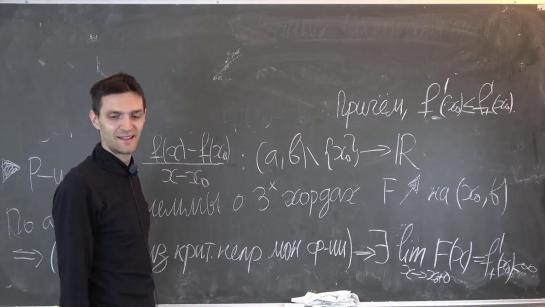 Причём, f'₋(x₀) ≤ f'₊(x₀).
Р-м f(x)-f(x₀) / x-x₀ : (a,b)\{x₀} → ℝ
По леммы о 3ˣ хордах F ↗ на (x₀, b)
⇒ из крит. непр. мон. ф-ии) → ∃ lim x→x₀+0 F(x) = f'₊(x₀) < ∞